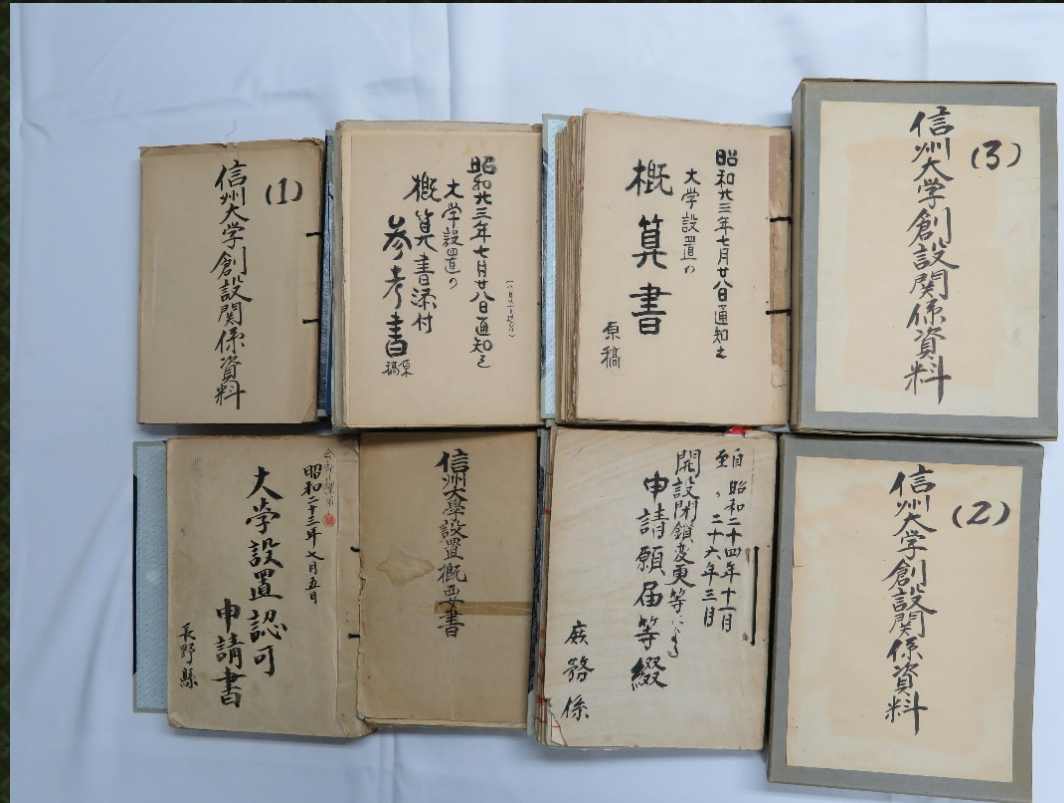 (1)
信州大学創設関係資料
昭和廿三年七月廿八日通知之
大学設置の
概算書添付
参考書
原稿
昭和廿三年七月廿八日通知之
大学設置の
概算書
原稿
(3)
信州大学創設関係資料
昭和二十三年七月五日
大学設置認可
申請書
長野縣
信州大學設置概要書
自 昭和二十四年十一月
至 〃 二十六年三月
開設閉鎖変更等による
申請願届等綴
庶務係
(2)
信州大学創設関係資料